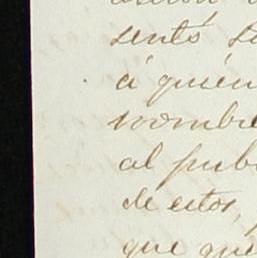 sentó
á quién
nombre
al pub
de estos,
que que